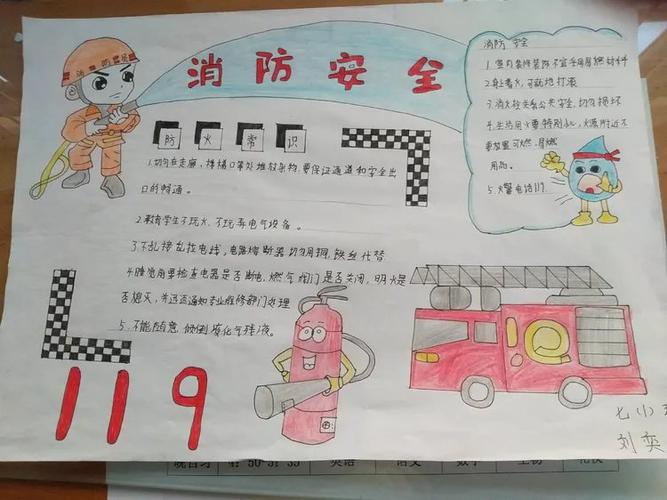 消防安全
防火常识
1.切勿在走廊、楼梯口等处堆放杂物,要保证通道和安全出
口的畅通。
2.教育学生不玩火、不玩弄电气设备。
3.不乱接乱拉电线,电路熔断器切勿用铜、铁丝代替
4.睡觉前要检查电器是否断电,燃气阀门是否关闭,明火是
否熄灭,并迅速通知专业维修部门处理
5.不能随意倾倒液化气残液。
119
消防安全
1.室内装修装饰不宜采用易燃材料
2.身上着火,可就地打滚
3.消火栓关系公共安全,切勿损坏
4.生活用火要特别小心,火源附近不
要放置可燃、易燃
用品。
5.火警电话119.
七(1)
刘奕
晚自习 英语 语文 数学 生物